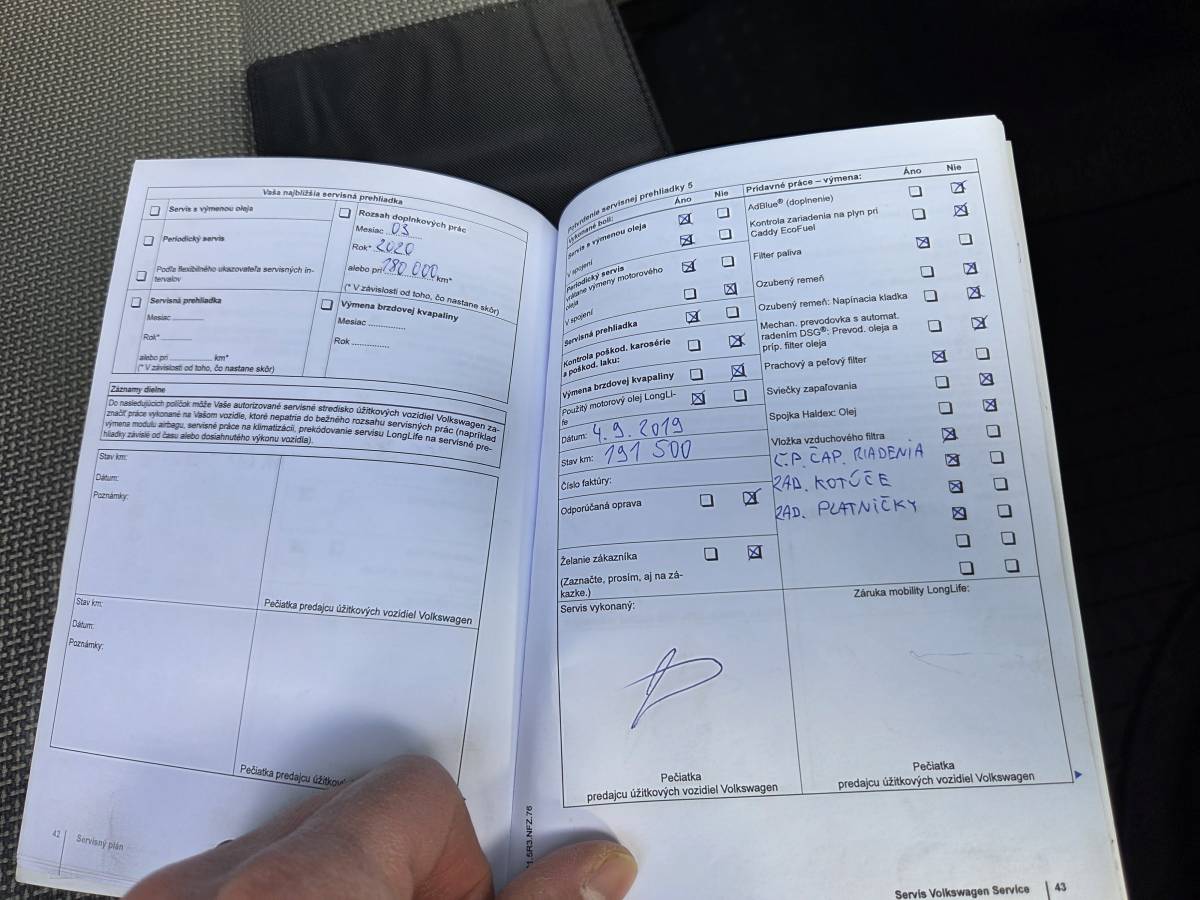 Vaša najbližšia servisná prehliadka
Servis s výmenou oleja
Periodický servis
Podľa flexibilného ukazovateľa servisných in-
tervalov
Rozsah doplnkových prác
Mesiac 03
Rok* 2020
alebo pri 180 000 km*
(* V závislosti od toho, čo nastane skôr)
Servisná prehliadka
Mesiac
Rok*
alebo pri km*
(* V závislosti od toho, čo nastane skôr)
Výmena brzdovej kvapaliny
Mesiac
Rok
Záznamy dielne
Do nasledujúcich políčok môže Vaše autorizované servisné stredisko úžitkových vozidiel Volkswagen za-
značiť práce vykonané na Vašom vozidle, ktoré nepatria do bežného rozsahu servisných prác (napríklad
výmena modulu airbagu, servisné práce na klimatizácii, prekódovanie servisu LongLife na servisné pre-
hliadky závislé od času alebo dosiahnutého výkonu vozidla).
Stav km:
Dátum:
Poznámky:
Pečiatka predajcu úžitkových vozidiel Volkswagen
Stav km:
Dátum:
Poznámky:
Pečiatka predajcu úžitkov
42 Servisný plán
Potvrdenie servisnej prehliadky 5
Vykonané boli: Áno Nie
Servis s výmenou oleja
V spojení
Periodický servis
vrátane výmeny motorového
oleja
V spojení
Servisná prehliadka
Kontrola poškod. karosérie
a poškod. laku:
Výmena brzdovej kvapaliny
Použitý motorový olej LongLi-
fe
Dátum: 4. 9. 2019
Stav km: 191 500
Číslo faktúry:
Odporúčaná oprava
Želanie zákazníka
(Zaznačte, prosím, aj na zá-
kazke.)
Servis vykonaný:
Pečiatka
predajcu úžitkových vozidiel Volkswagen
Prídavné práce – výmena: Áno Nie
AdBlue® (doplnenie)
Kontrola zariadenia na plyn pri
Caddy EcoFuel
Filter paliva
Ozubený remeň
Ozubený remeň: Napínacia kladka
Mechan. prevodovka s automat.
radením DSG®: Prevod. oleja a
príp. filter oleja
Prachový a peľový filter
Sviečky zapaľovania
Spojka Haldex: Olej
Vložka vzduchového filtra
Ľ.P. ČAP. RIADENIA
ZAD. KOTÚČE
ZAD. PLATNIČKY
Záruka mobility LongLife:
Pečiatka
predajcu úžitkových vozidiel Volkswagen
Servis Volkswagen Service 43